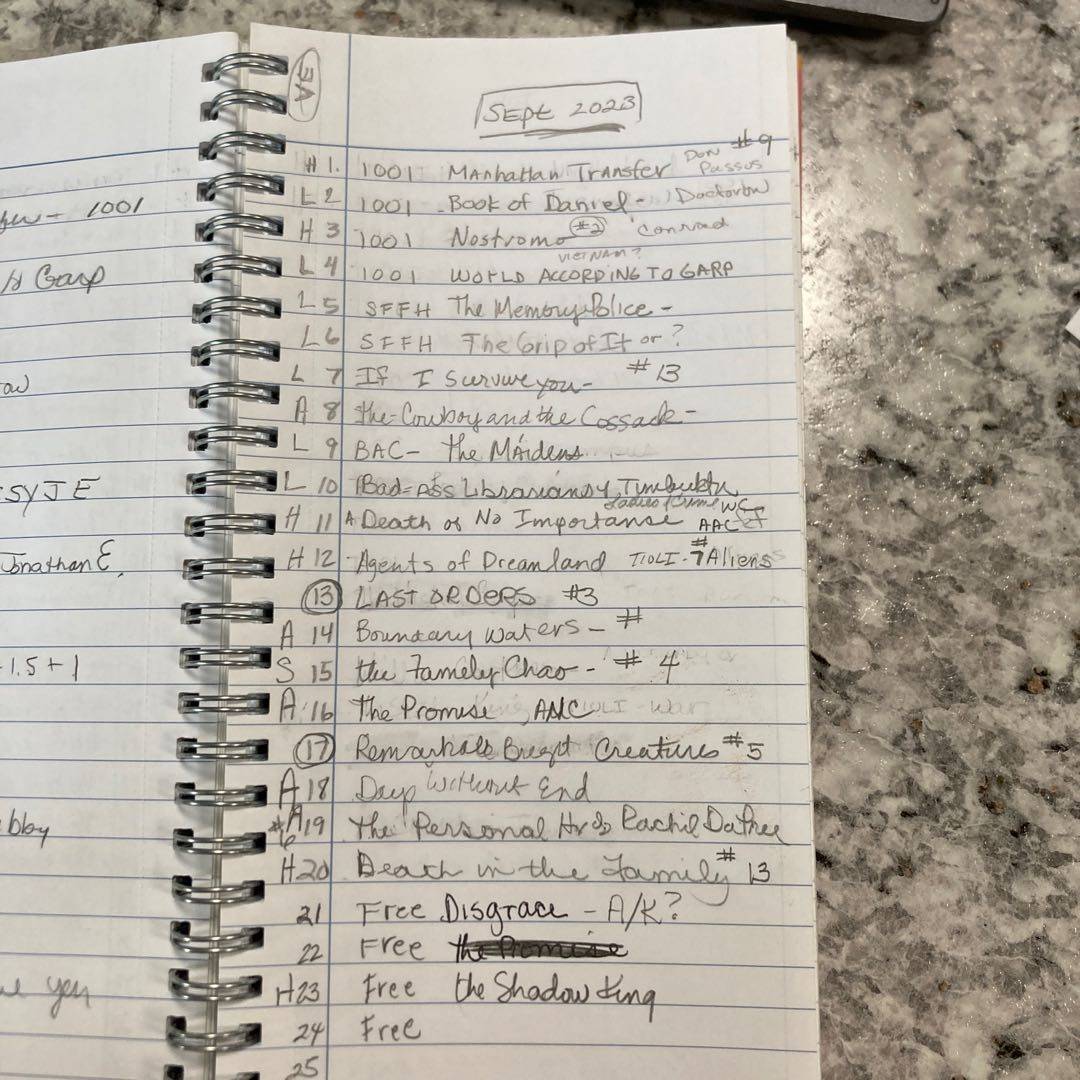 3A
SEPT 2023
H 1. 1001 Manhattan Transfer Don Passos #9
L 2 1001 Book of Daniel - Doctorow
H 3 1001 Nostromo #2 Conrad
VIETNAM?
L 4 1001 WORLD ACCORDING TO GARP
L 5 SFFH The Memory Police -
L 6 SFFH The Grip of It or ?
L 7 If I Survive you - #13
A 8 the Cowboy and the Cossack -
L 9 BAC - the Maidens
L 10 Bad-Ass Librarians Timbuktu
Ladies of Crime
H 11 A Death of No Importanse AAC
H 12 Agents of Dreamland TIOLI - #7 Aliens
13 LAST ORDERS #3
A 14 Boundary Waters - #
S 15 the Family Chao - # 4
A 16 The Promise, AAC
17 Remarkable Bright Creatures #5
A 18 Days Without End
#6 A 19 the Personal
H 20 Death in the Family # 13
21 Free Disgrace - A/K?
22 Free the Promise
H 23 Free the Shadow King
24 Free
25
1001
Garp
SYJE
Jonathan E.
1.5 + 1
bby
yen